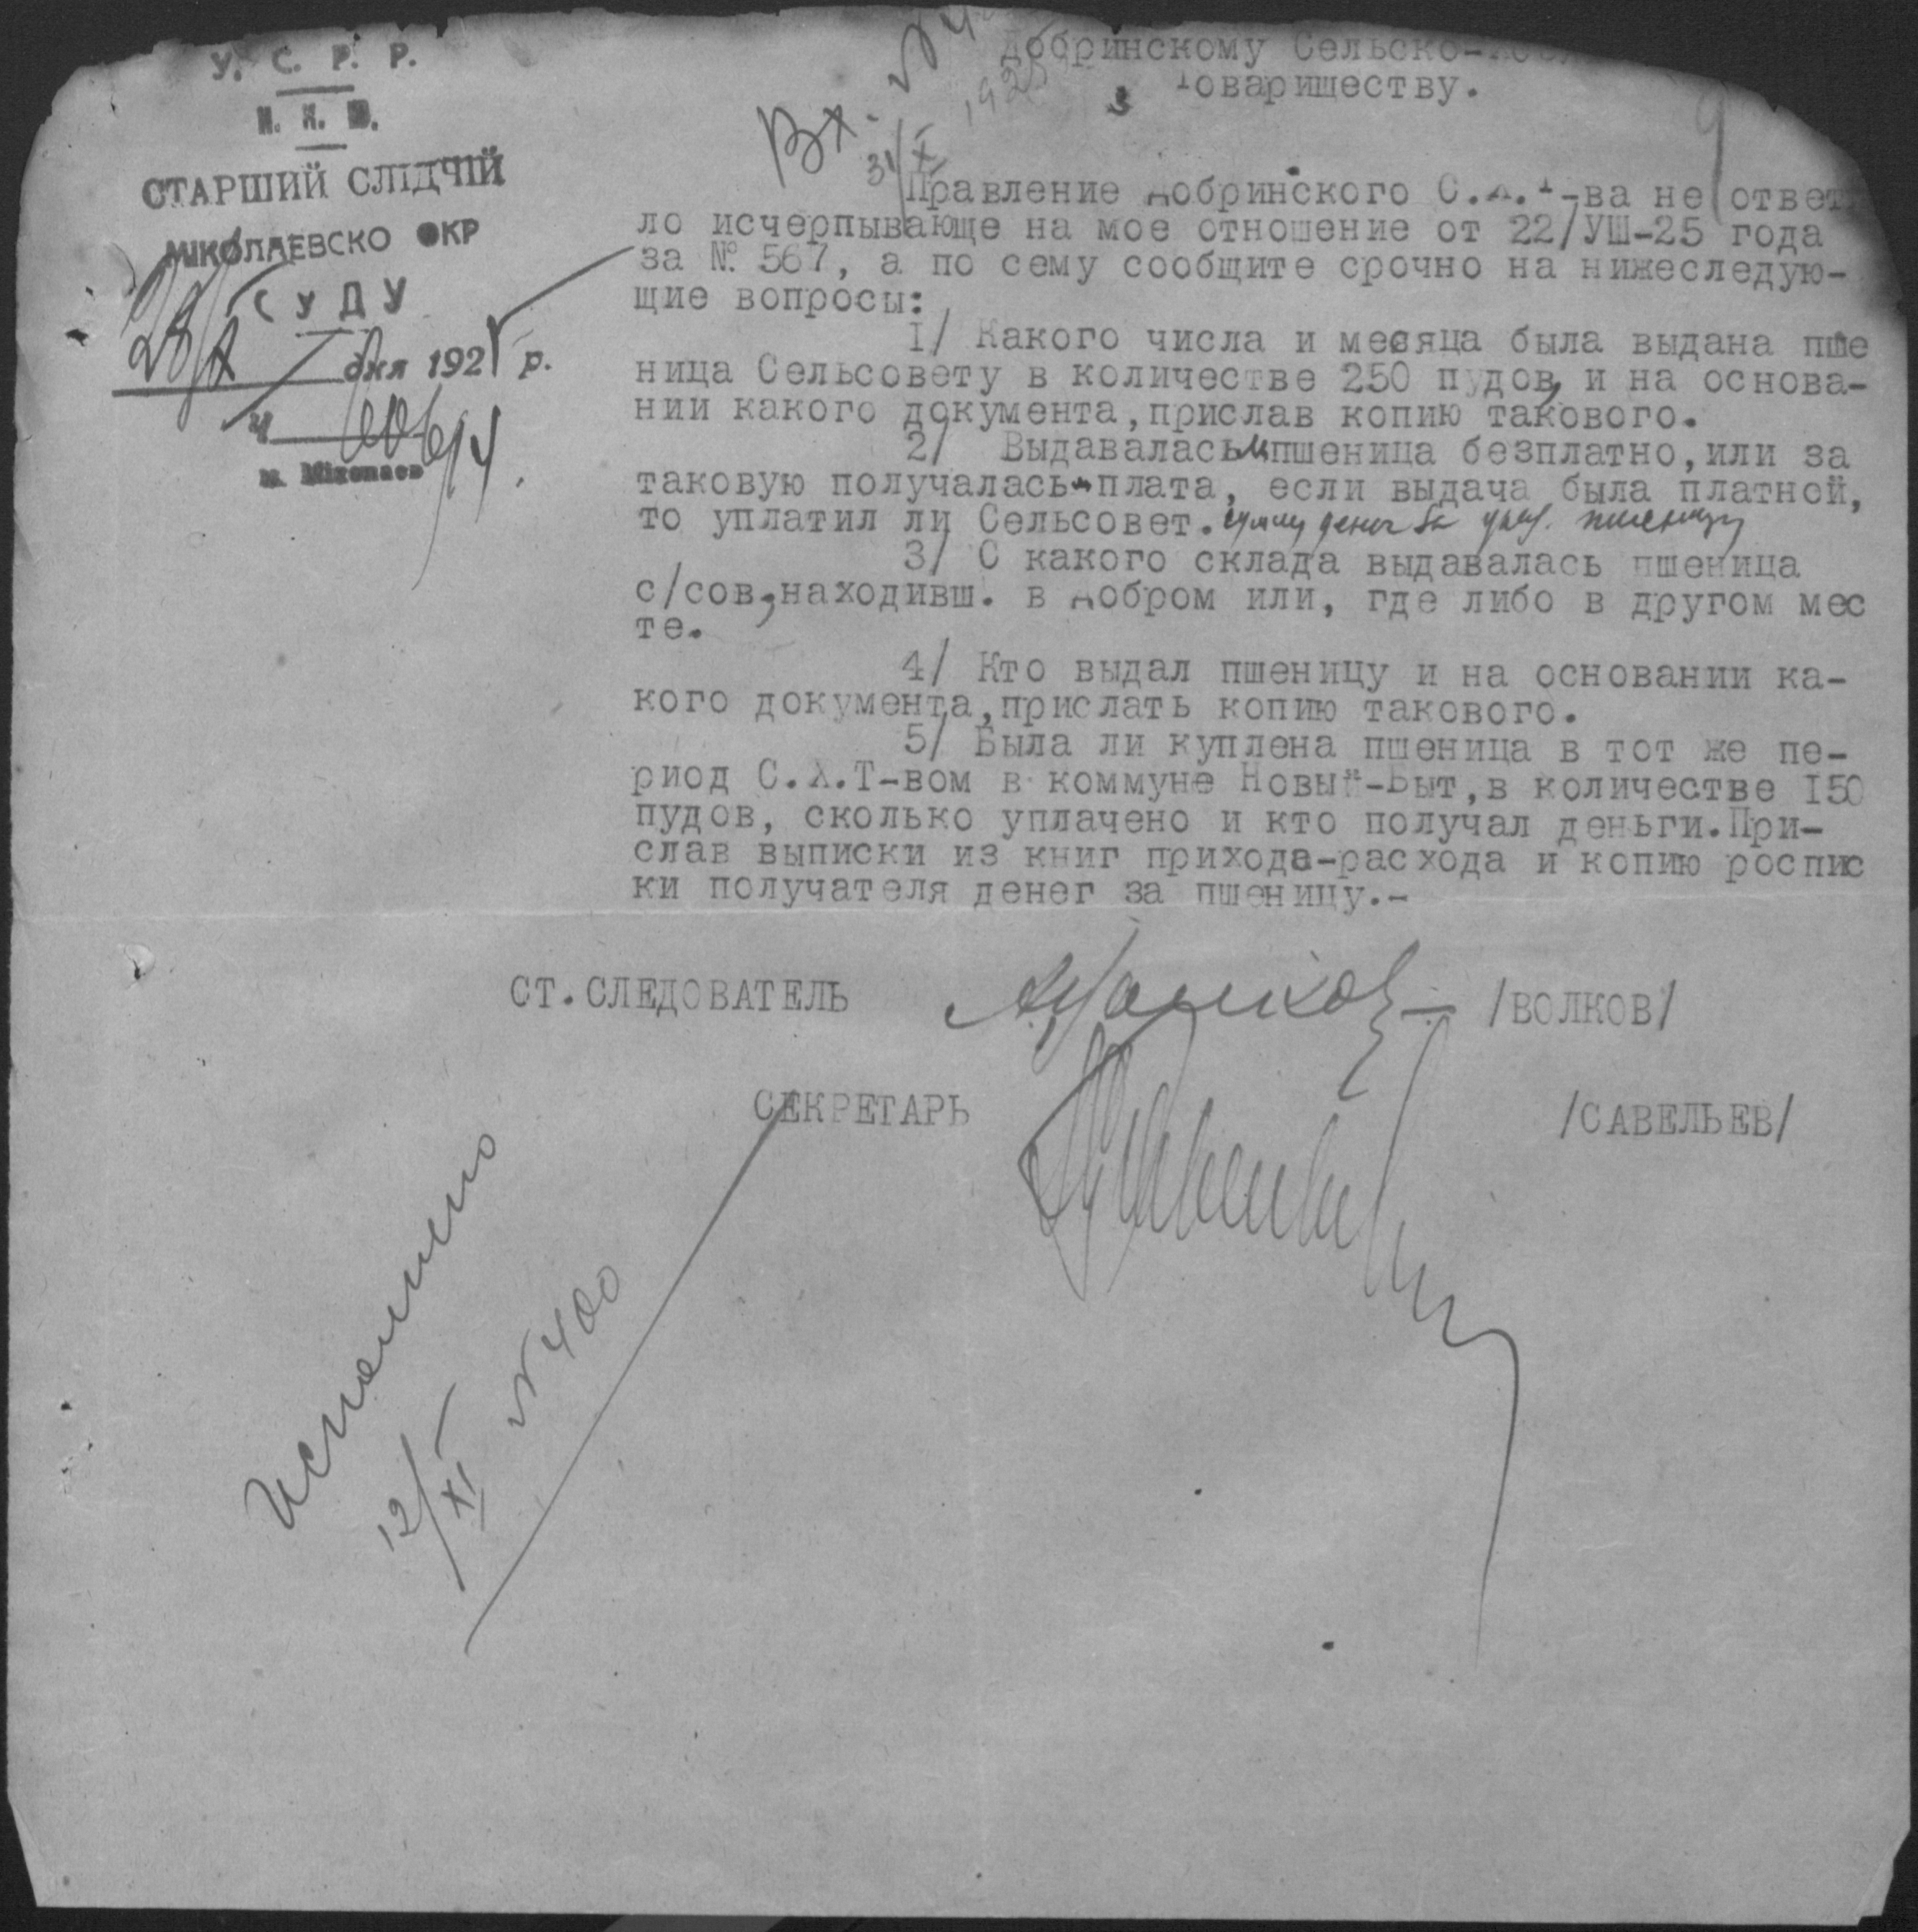 У. С. Р. Р.
Н. К. Ю.
СТАРШИЙ СЛІДЧІЙ
МІКОЛАЕВСКО ОКР
СУДУ
28/X дня 1925 р.
Ч
м. Міколаев
Вх. №
31/X 1925
Добринскому Сельско-
Товариществу.
9
Правление Добринского С.Х.Т-ва не ответ
ло исчерпывающе на мое отношение от 22/УШ-25 года
за № 567, а по сему сообщите срочно на нижеследую-
щие вопросы:
1/ Какого числа и месяца была выдана пше
ница Сельсовету в количестве 250 пудов, и на основа-
нии какого документа,прислав копию такового.
2/ Выдавалась пшеница безплатно,или за
таковую получалась плата, если выдача была платной,
то уплатил ли Сельсовет. сумму денег за указ. пшеницу
3/ С какого склада выдавалась пшеница
с/сов,находивш. в Добром или, где либо в другом мес
те.
4/ Кто выдал пшеницу и на основании ка-
кого документа,прислать копию такового.
5/ Была ли куплена пшеница в тот же пе-
риод С.Х.Т-вом в коммуне Новый-Быт,в количестве 150
пудов, сколько уплачено и кто получал деньги.При-
слав выписки из книг прихода-расхода и копию роспис
ки получателя денег за пшеницу.-
СТ.СЛЕДОВАТЕЛЬ /ВОЛКОВ/
СЕКРЕТАРЬ /САВЕЛЬЕВ/
Исполнено
12/XI №400